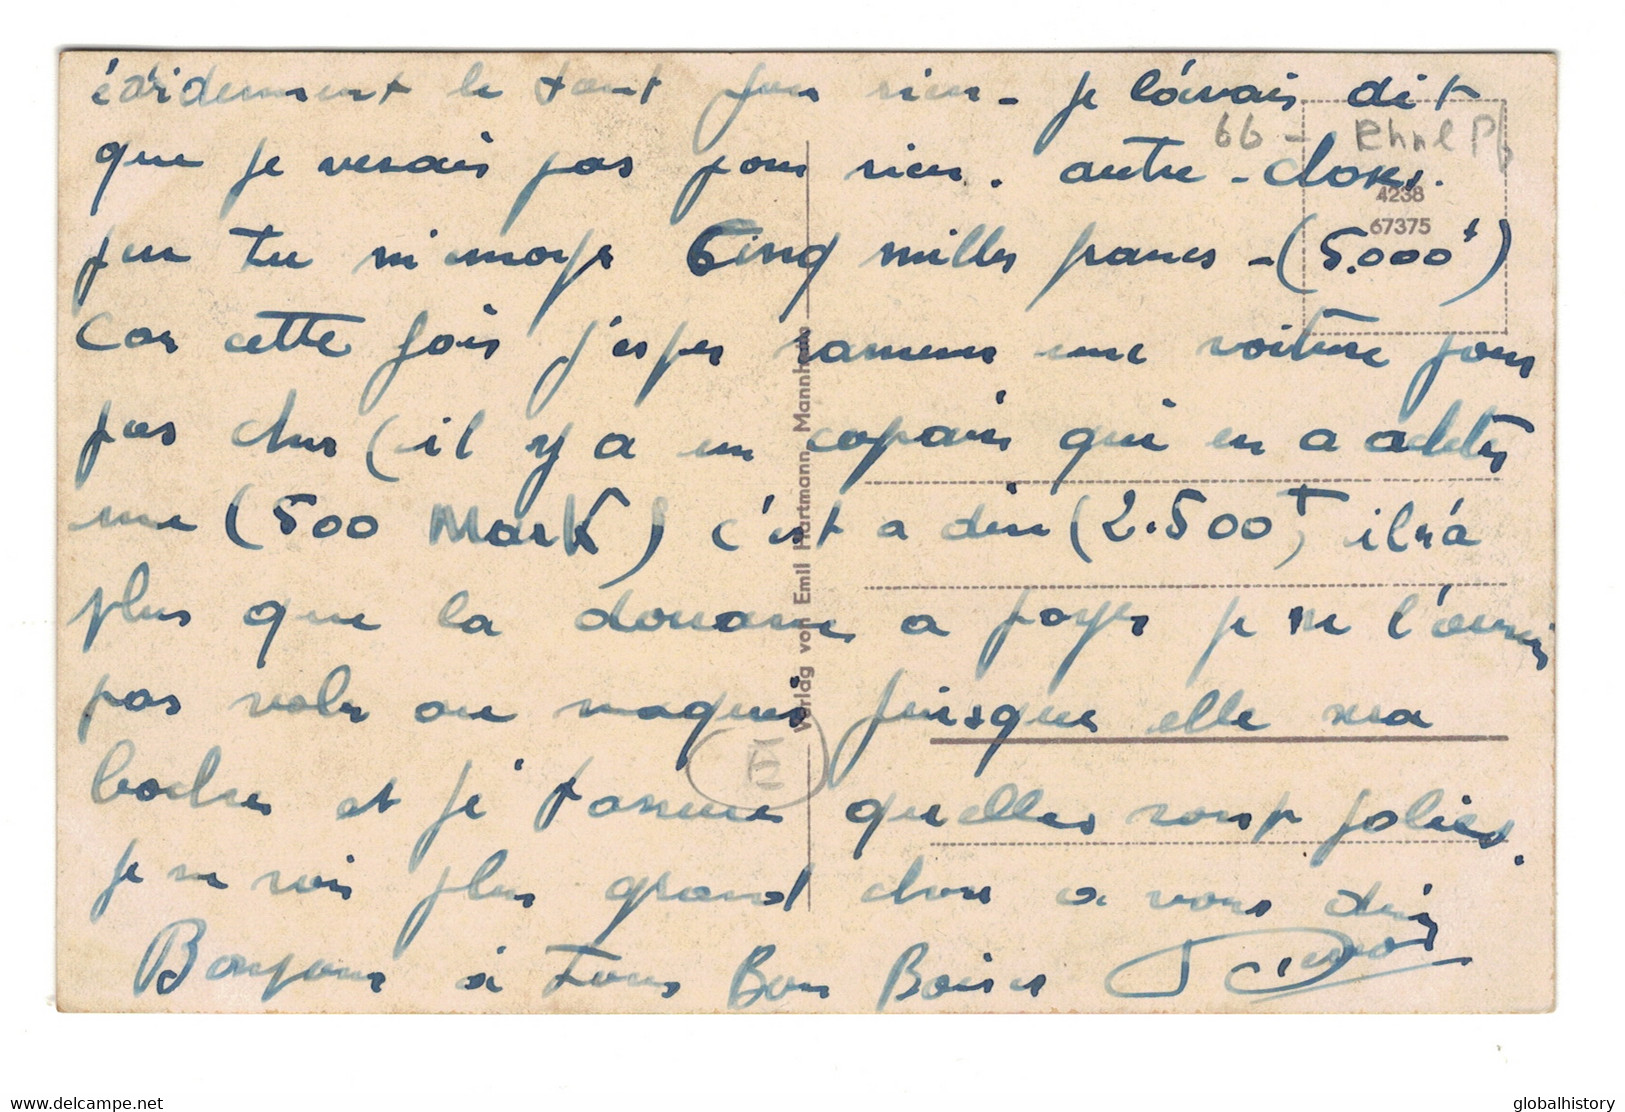 évidemment le tout pour rien - je l'avais dit
66 - Rhnl Pf
que je verais pas pour rien. autre - chose.
4238
67375
feu tu m'envoys Cinq milles francs - (5.000 f)
Car cette fois j'esper ramener une voiture pour
pas cher (il y a un copain qui en a acheter
une (500 Mark) c'est a dire (2.500 f, il n'à
plus que la douane a payer je ne l'aurais
pas voler au maquis puisque elle sera
boches et je t'assure quelles sont jolies.
je ne vois plus grand chose a vous dire
Bonjour à Tous Bon Baiser
Verlag von Emil Hartmann, Mannheim
www.delcampe.net
globalhistory